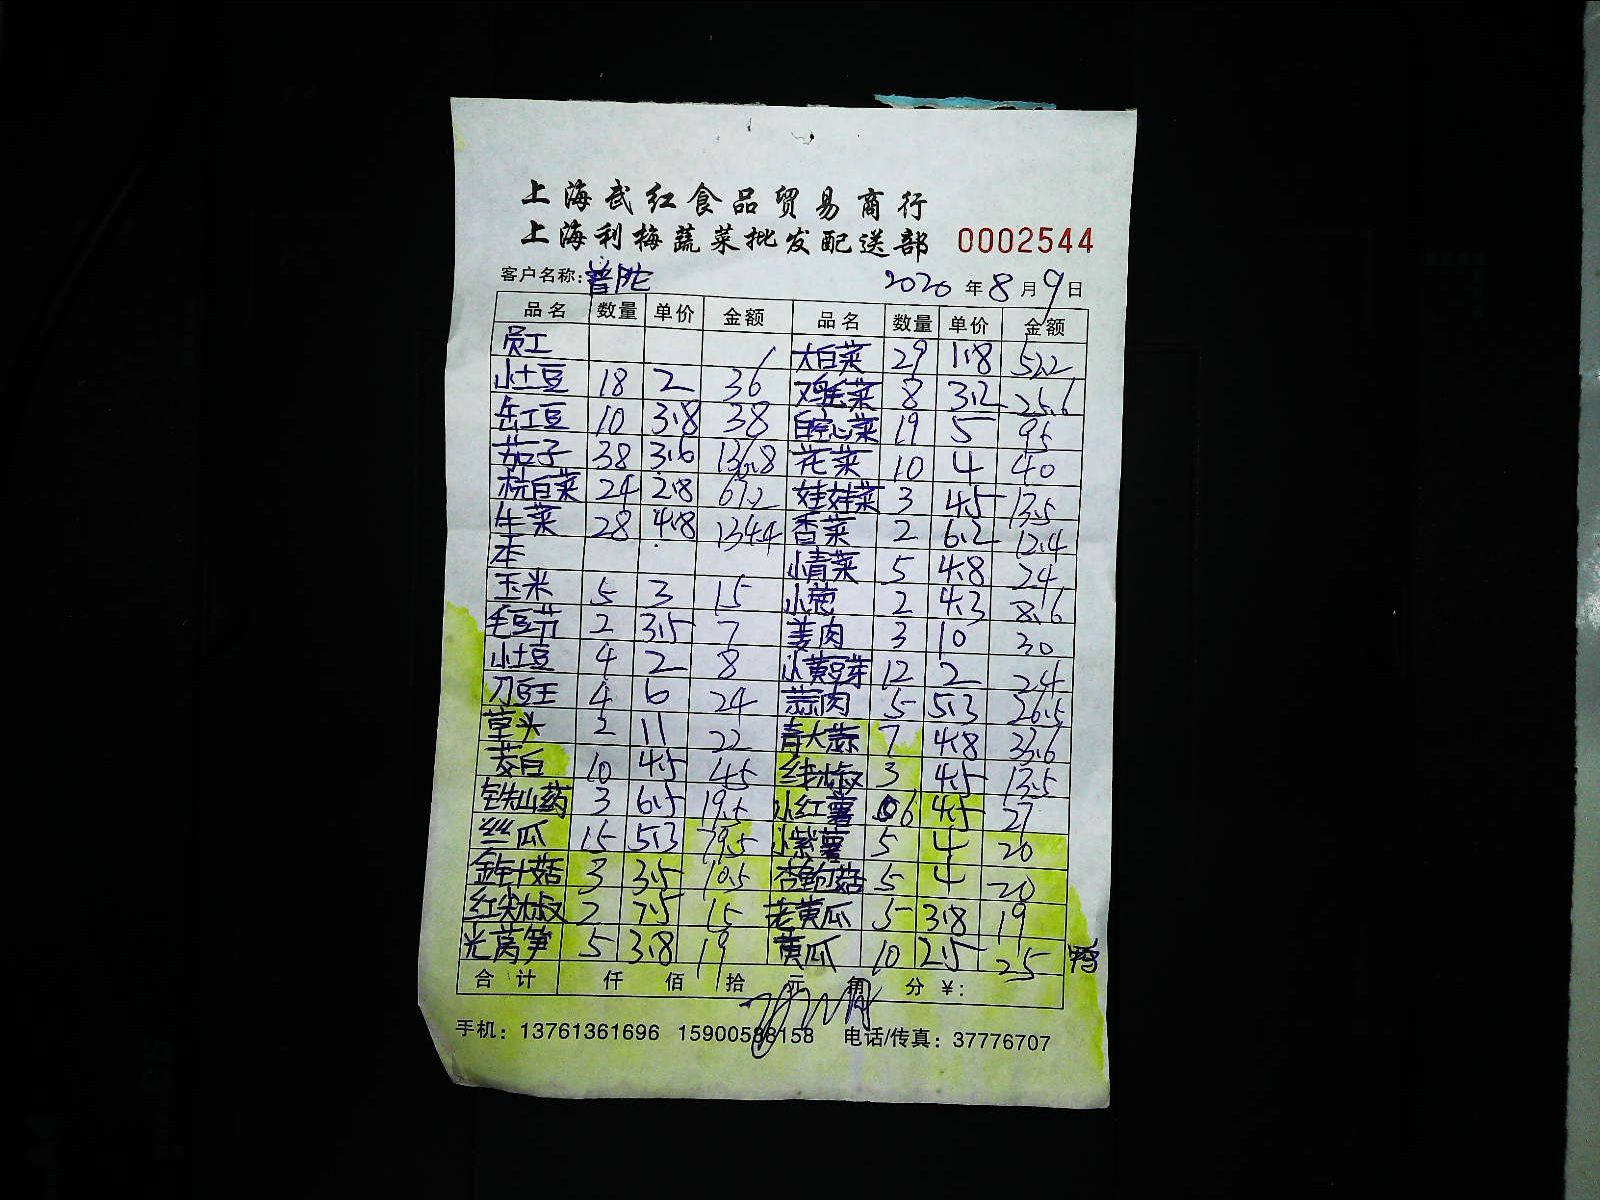 上海武红食品贸易商行
上海利梅蔬菜批发配送部 0002544
客户名称: 普陀 2020 年 8 月 9 日
品名 数量 单价 金额 品名 数量 单价 金额
员工 大白菜 29 1.8 52.2
小土豆 18 2 36 鸡毛菜 8 3.2 25.6
缸豆 10 3.8 38 白空心菜 19 5 95
茄子 38 3.6 136.8 花菜 10 4 40
杭白菜 24 2.8 67.2 娃娃菜 3 4.5 13.5
生菜 28 4.8 134.4 香菜 2 6.2 12.4
本 小青菜 5 4.8 24
玉米 5 3 15 小葱 2 4.3 8.6
毛豆节 2 3.5 7 姜肉 3 10 30
小土豆 4 2 8 小黄豆芽 12 2 24
刀豆王 4 6 24 蒜肉 5 5.3 26.5
草头 2 11 22 青大蒜 7 4.8 33.6
茭白 10 4.5 45 线椒 3 4.5 13.5
铁山药 3 6.5 19.5 小红薯 6 4.5 27
丝瓜 15 5.3 79.5 小紫薯 5 4 20
金针菇 3 3.5 10.5 杏鲍菇 5 4 20
红尖椒 2 7.5 15 老黄瓜 5 3.8 19
光莴笋 5 3.8 19 黄瓜 10 2.5 25
合计 仟 佰 拾 元 角 分 ¥:
手机: 13761361696 15900588158 电话/传真: 37776707